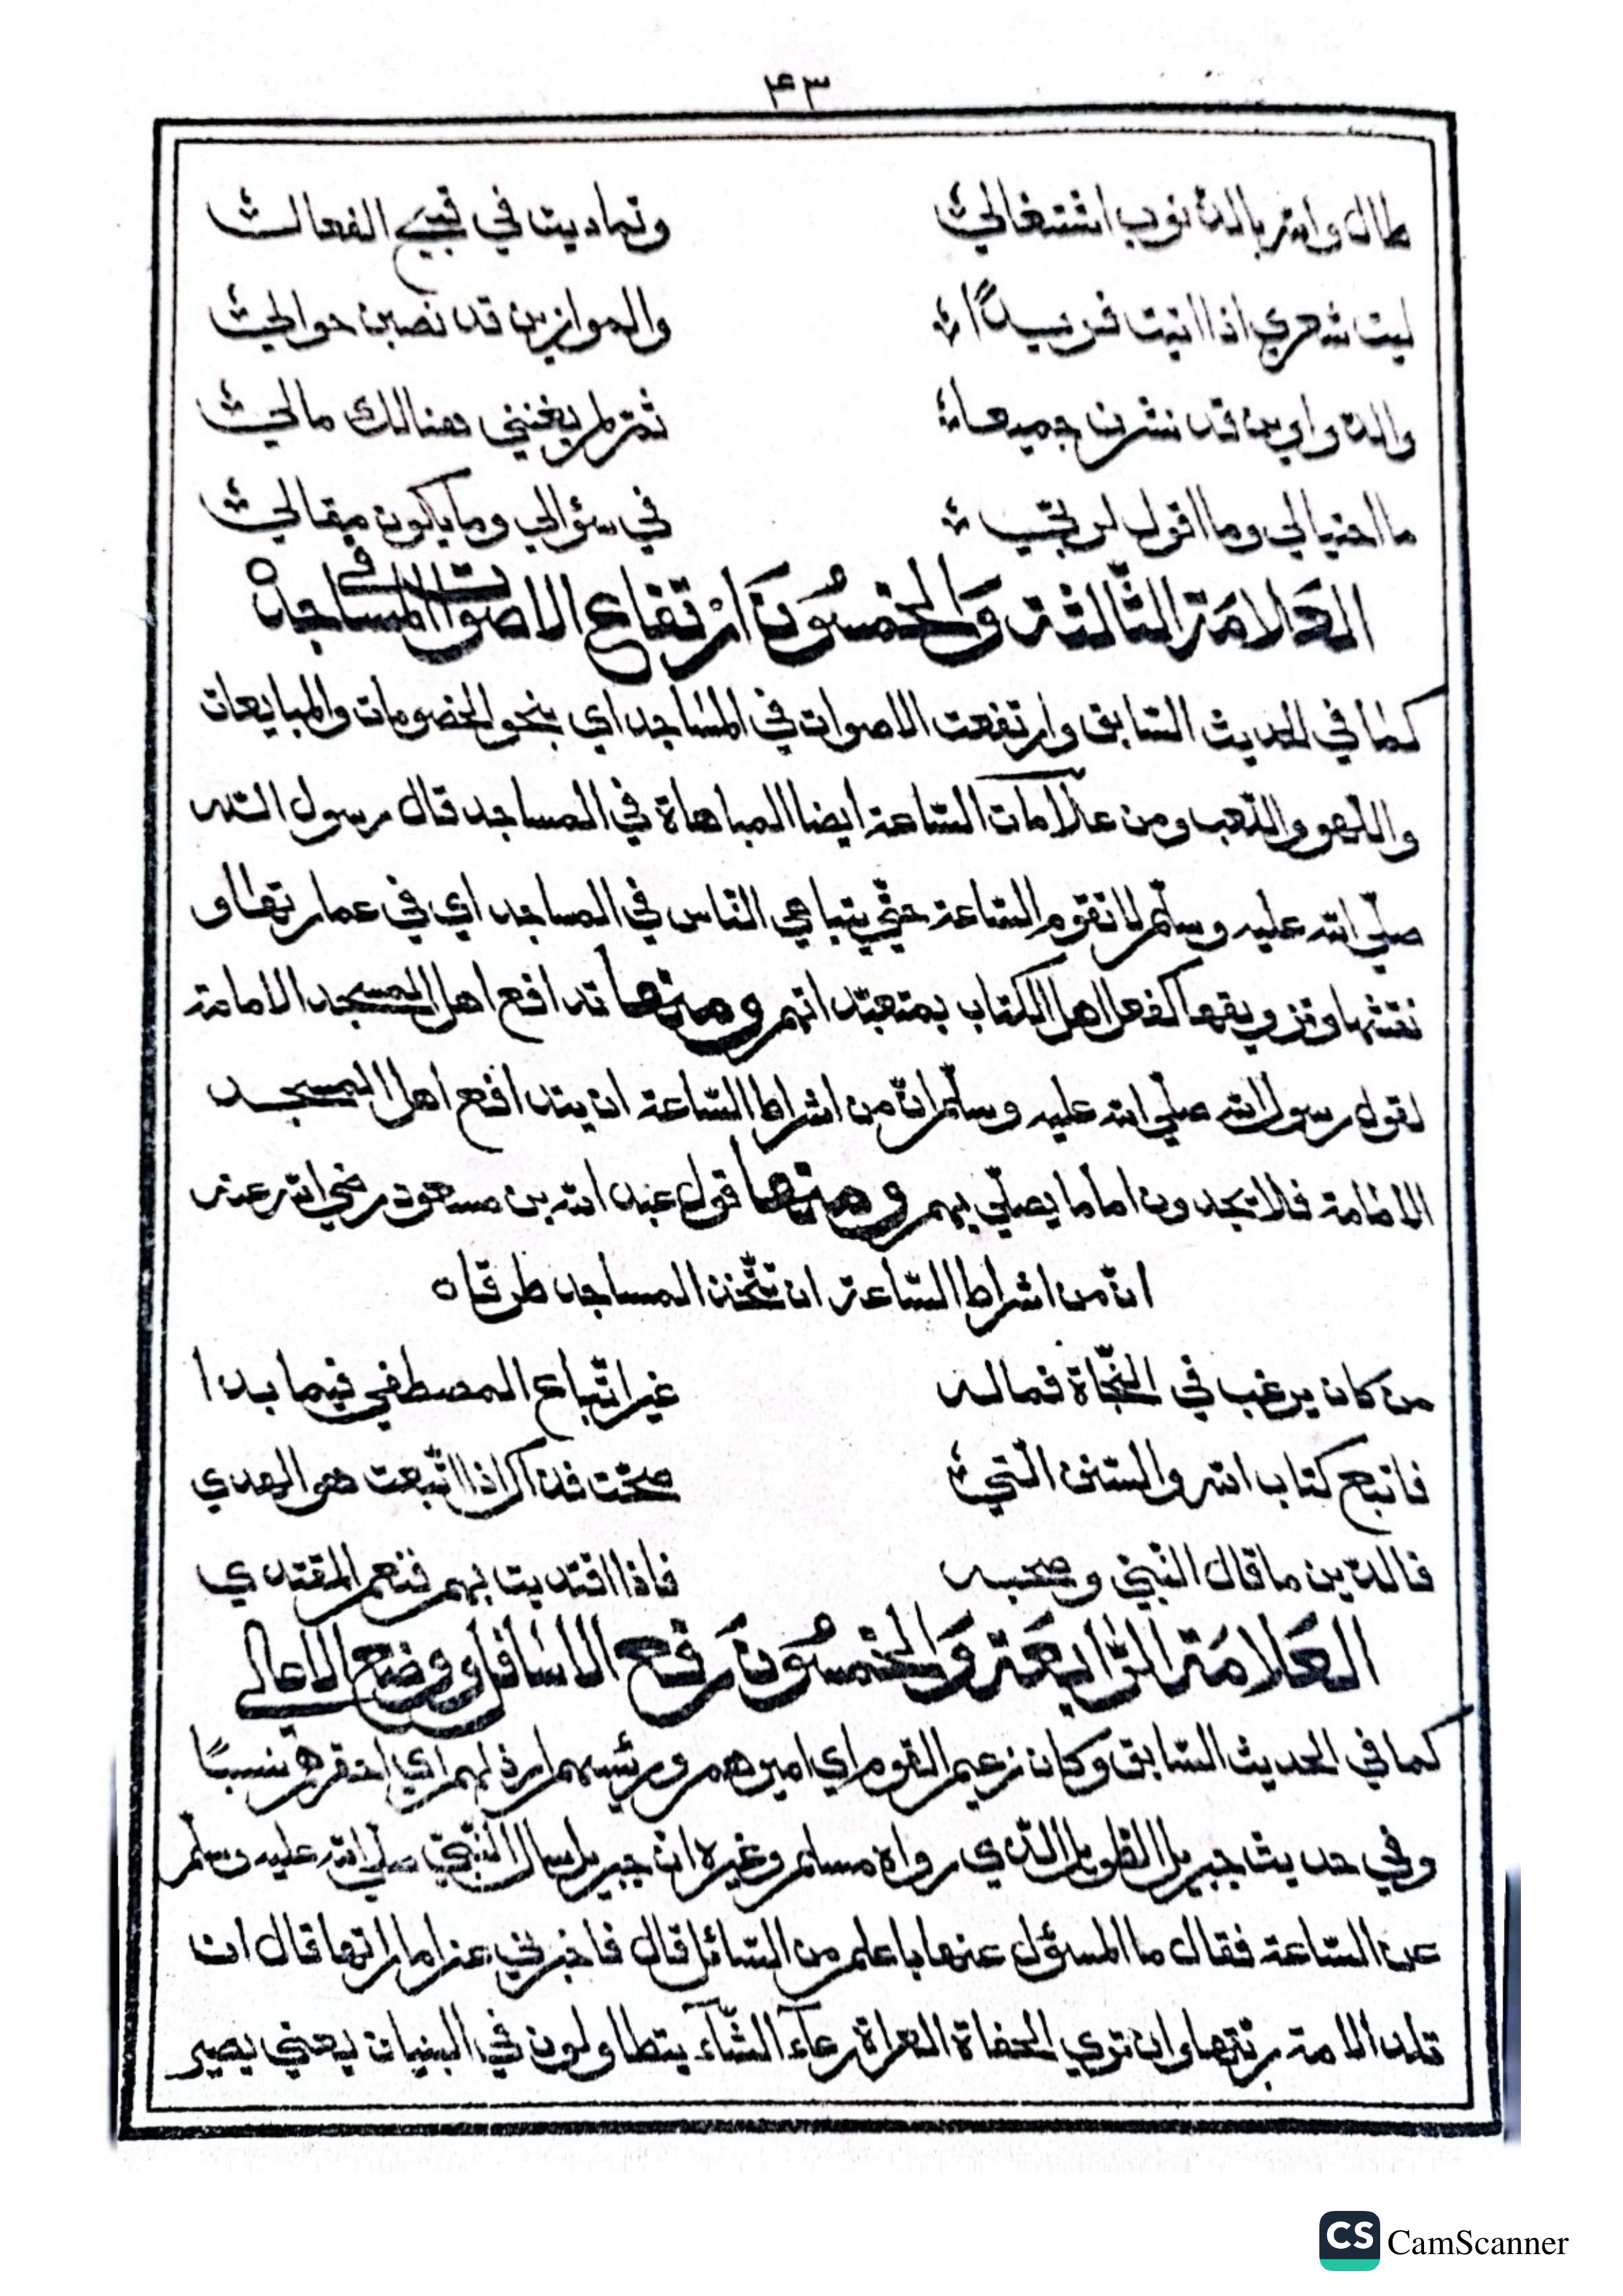 ۴۳
طال والله بالذنوب اشتغالي وتماديت في قبيح الفعال
ليت شعري اذا اتيت فريدًا والموازين قد نصبن حوالي
والدواوين قد نشرن جميعا ثمّ لم يغنني هنالك مالي
ما احتيالي وما اقول لربّي في سؤالي وما يكون مقالي
العَلامَة الثّالثة وَالخمسُونَ ارْتفاع الاصوات في المساجد ه
كما في الحديث السّابق وارتفعت الاصوات في المساجد اي بنحو الخصومات والمبايعات
واللّهو واللّعب ومن علامات السّاعة ايضا المباهاة في المساجد قال رسول الله
صلّي الله عليه وسلّم لا تقوم السّاعة حتّي يتباهي النّاس في المساجد اي في عمارتها و
نقشها وتزويقها كفعل اهل الكتاب بمتعبّداتهم ومنها تدافع اهل المسجد الامامة
لقول رسول الله صلّي الله عليه وسلّم انّ من اشراط السّاعة ان يتدافع اهل المسجد
الامامة فلا يجدون اماما يصلّي بهم ومنها قول عبد الله بن مسعود رضي الله عنه
انّ من اشراط السّاعة ان تتّخذ المساجد طرقا ه
من كان يرغب في النّجاة فما له غير اتّباع المصطفي فيما بدا
فاتبع كتاب الله والسّنن الّتي صحّت فذاك اذا اتّبعت هو الهدي
فالدّين ما قال النّبي وصحبه فاذا اقتديت بهم فنعم المقتدي
العَلامَة الرّابعَة وَالخمسُونَ رفع الاسافل ووضع الاعالي
كما في الحديث السّابق وكان زعيم القوم اي اميرهم ورئيسهم ارذلهم اي احقرهم نسبًا
وفي حديث جبريل الطويل الّذي رواه مسلم وغيره انّ جبريل سال النّبيّ صلّي الله عليه وسلّم
عن السّاعة فقال ما المسؤل عنها باعلم من السّائل قال فاخبرني عن اماراتها قال ان
تلد الامة ربّتها وان تري الحفاة العراة رعآء الشّآء يتطاولون في البنيان يعني يصير
CS CamScanner